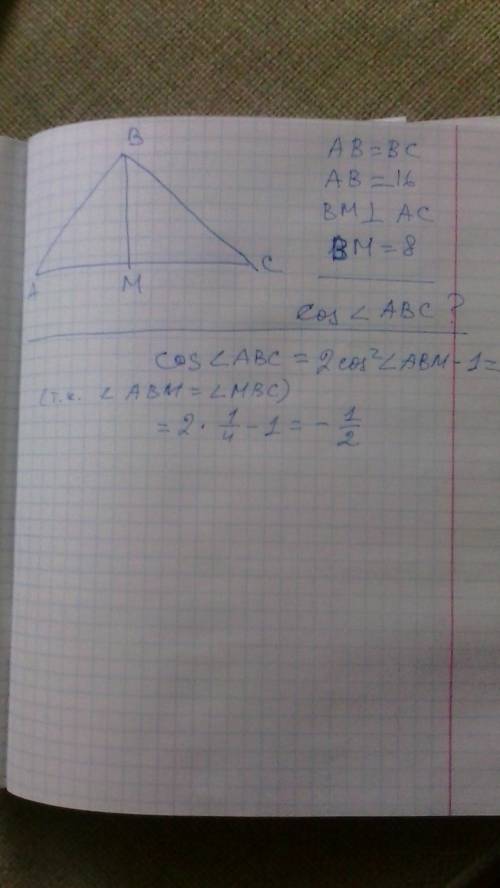 B
A
M
C
AB = BC
AB = 16
BM ⊥ AC
BM = 8
cos ∠ ABC ?
cos ∠ ABC = 2cos² ∠ ABM - 1 =
(т.к. ∠ ABM = ∠MBC)
= 2 · 1/4 - 1 = - 1/2